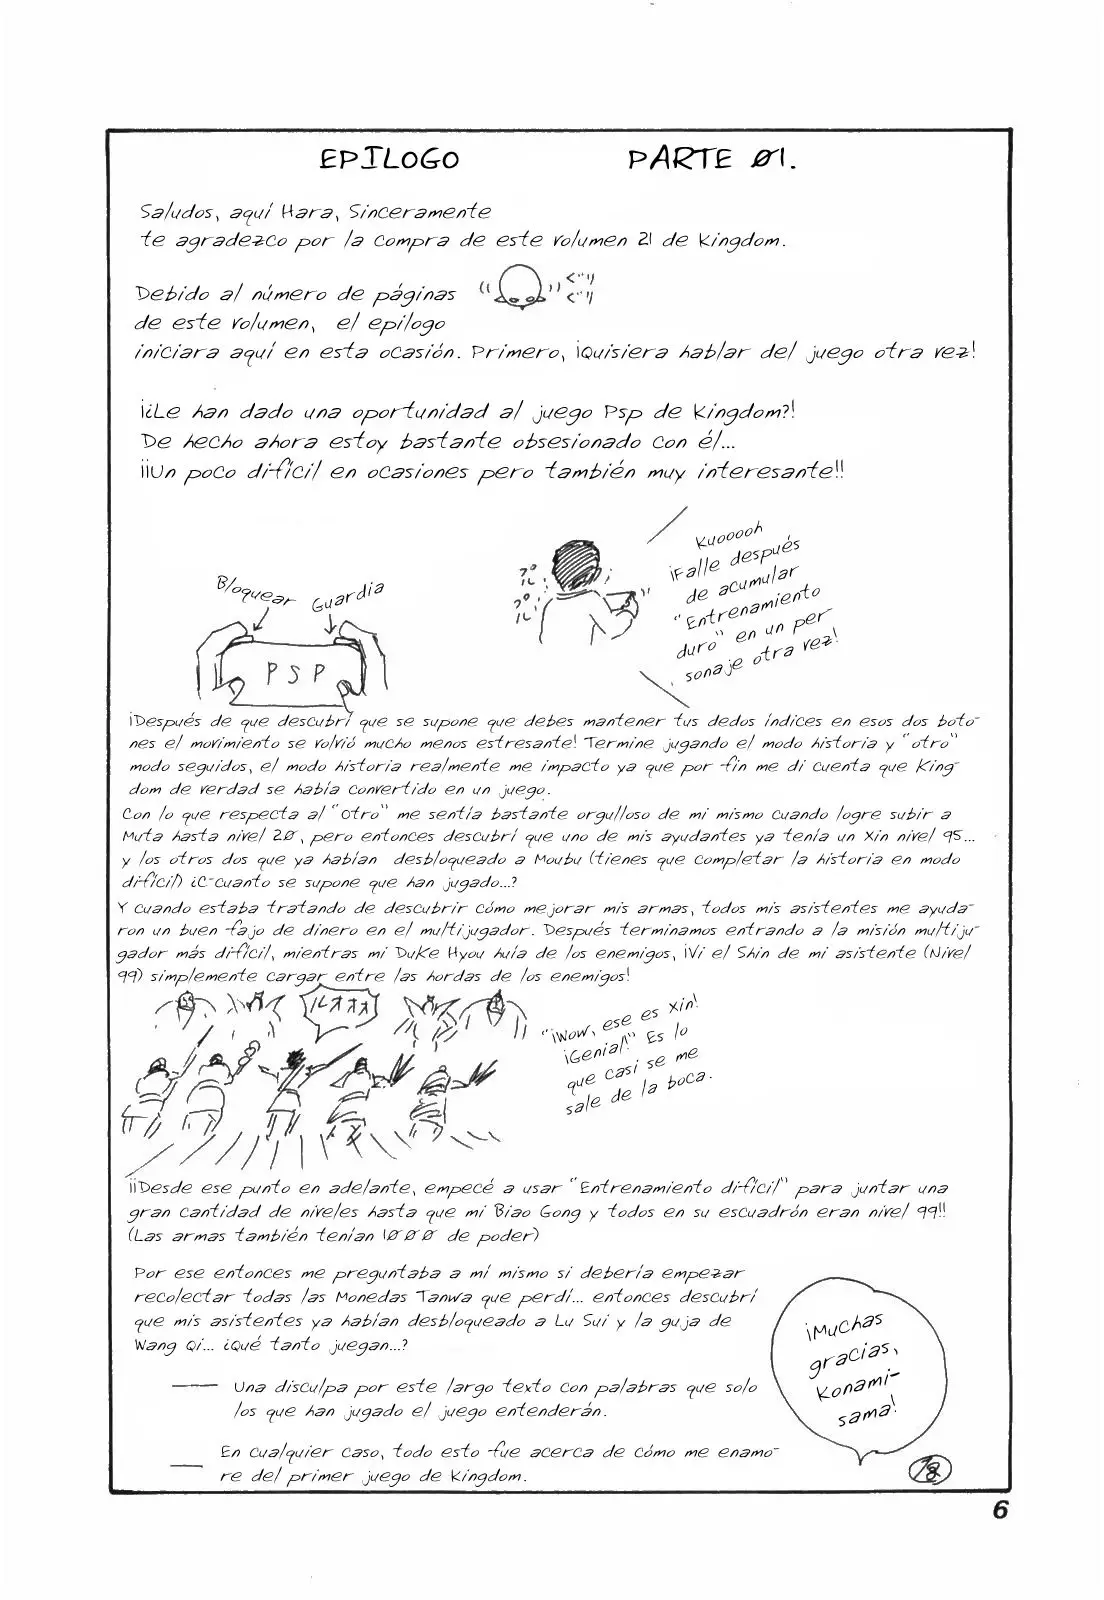 EPILOGO PARTE 01.
Saludos, aquí Hara, Sinceramente
te agradezco por la compra de este volumen 21 de Kingdom.
Debido al número de páginas
de este volumen, el epilogo
iniciara aquí en esta ocasión. Primero, ¡Quisiera hablar del juego otra vez!
¡¿Le han dado una oportunidad al juego Psp de Kingdom?!
De hecho ahora estoy bastante obsesionado con él...
¡¡Un poco difícil en ocasiones pero también muy interesante!!
Bloquear
Guardia
PSP
プルプル
Kuooooh
¡Falle después
de acumular
"Entrenamiento
duro" en un per
sonaje otra vez!
¡Después de que descubrí que se supone que debes mantener tus dedos índices en esos dos boto-
nes el movimiento se volvió mucho menos estresante! Termine jugando el modo historia y "otro"
modo seguidos, el modo historia realmente me impacto ya que por fin me di cuenta que King-
dom de verdad se había convertido en un juego.
Con lo que respecta al "otro" me sentía bastante orgulloso de mi mismo cuando logre subir a
Muta hasta nivel 20, pero entonces descubrí que uno de mis ayudantes ya tenía un Xin nivel 95...
y los otros dos que ya habían desbloqueado a Moubu (tienes que completar la historia en modo
difícil) ¿C-cuanto se supone que han jugado...?
Y cuando estaba tratando de descubrir cómo mejorar mis armas, todos mis asistentes me ayuda-
ron un buen fajo de dinero en el multijugador. Después terminamos entrando a la misión multiju-
gador más difícil, mientras mi Duke Hyou huía de los enemigos, ¡Vi el Shin de mi asistente (Nivel
99) simplemente cargar entre las hordas de los enemigos!
ルオオオ
"¡Wow, ese es Xin!
¡Genial!" Es lo
que casi se me
sale de la boca.
¡¡Desde ese punto en adelante, empecé a usar "Entrenamiento difícil" para juntar una
gran cantidad de niveles hasta que mi Biao Gong y todos en su escuadrón eran nivel 99!!
(Las armas también tenían 1000 de poder)
Por ese entonces me preguntaba a mí mismo si debería empezar
recolectar todas las Monedas Tanwa que perdí... entonces descubrí
que mis asistentes ya habían desbloqueado a Lu Sui y la guja de
Wang Qi... ¿Qué tanto juegan...?
¡Muchas
gracias,
Konami-
sama!
Una disculpa por este largo texto con palabras que solo
los que han jugado el juego entenderán.
En cualquier caso, todo esto fue acerca de cómo me enamo-
re del primer juego de Kingdom.
6